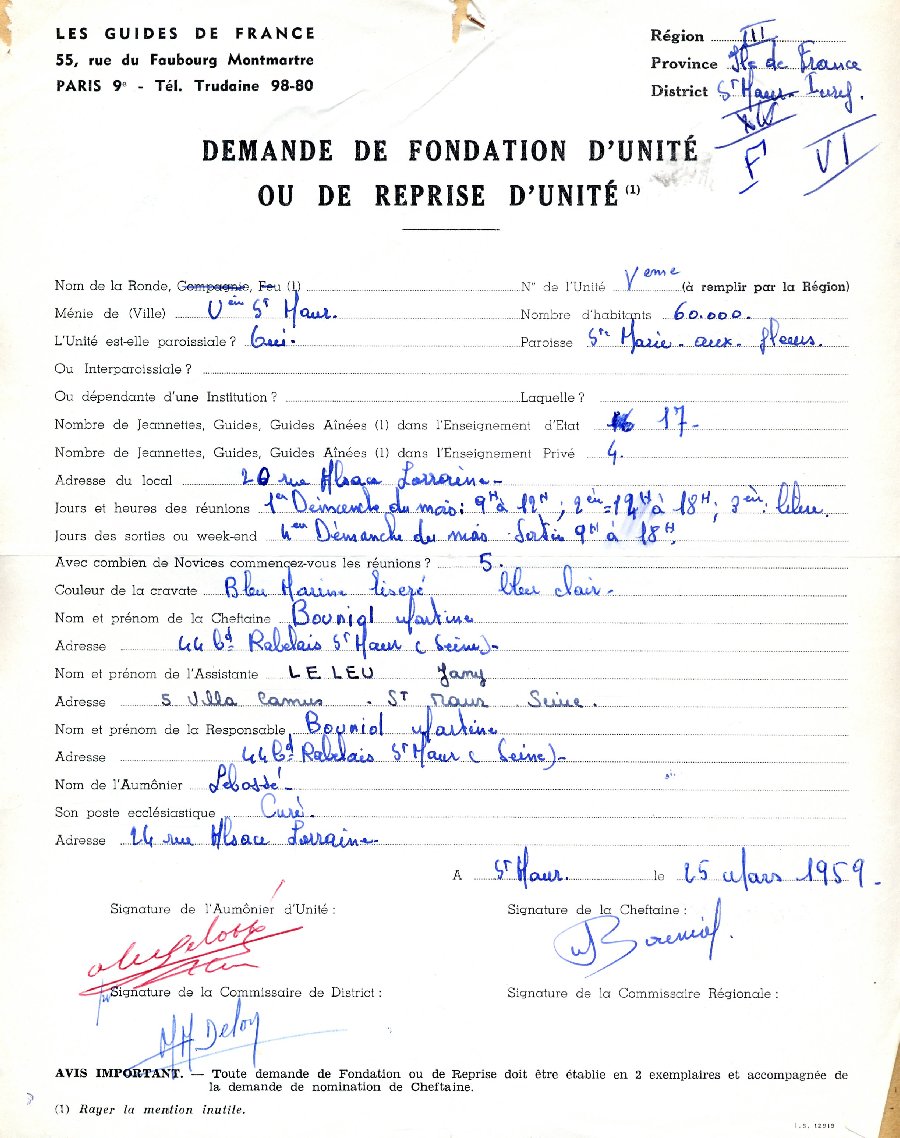 LES GUIDES DE FRANCE
55, rue du Faubourg Montmartre
PARIS 9e - Tél. Trudaine 98-80
Région III
Province Ile de France
District St Maur - Lucy.
XIV
F1 VI
DEMANDE DE FONDATION D'UNITÉ
OU DE REPRISE D'UNITÉ (1)
Nom de la Ronde, Compagnie, Feu (1) N° de l'Unité Veme (à remplir par la Région)
Ménie de (Ville) Vèn St Maur. Nombre d'habitants 60.000.
L'Unité est-elle paroissiale ? Oui. Paroisse Ste Marie. aux. fleurs.
Ou Interparoissiale ?
Ou dépendante d'une Institution ? Laquelle ?
Nombre de Jeannettes, Guides, Guides Aînées (1) dans l'Enseignement d'Etat 16 17-
Nombre de Jeannettes, Guides, Guides Aînées (1) dans l'Enseignement Privé 4.
Adresse du local 20 rue Alsace Lorraine-
Jours et heures des réunions 1er Dimanche du mois: 9H à 12H ; 2èn = 14H à 18H ; 3èn : libre.
Jours des sorties ou week-end 4en Dimanche du mois Sortie 9H à 18H.
Avec combien de Novices commencez-vous les réunions ? 5.
Couleur de la cravate Bleu Marine liseré bleu clair-
Nom et prénom de la Cheftaine Bouniol Martine
Adresse 44 Bd Rabelais St Maur (Seine)-
Nom et prénom de l'Assistante LELEU Jany
Adresse 5 Villa Camus . ST Maur Seine.
Nom et prénom de la Responsable Bouniol Martine
Adresse 44 Bd Rabelais St Maur (Seine)-
Nom de l'Aumônier Lebossé
Son poste ecclésiastique Curé.
Adresse 24 rue Alsace Lorraine-
A St Maur. le 25 Mars 1959.
Signature de l'Aumônier d'Unité : Signature de la Cheftaine :
MBouniol.
Signature de la Commissaire de District : Signature de la Commissaire Régionale :
MH Deloy
AVIS IMPORTANT. — Toute demande de Fondation ou de Reprise doit être établie en 2 exemplaires et accompagnée de
la demande de nomination de Cheftaine.
(1) Rayer la mention inutile.
I.S. 12919